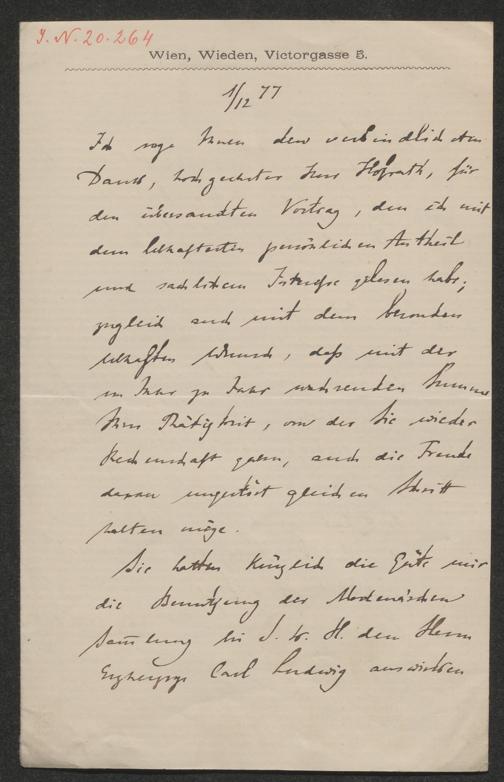 I. N. 20.264
Wien, Wieden, Victorgasse 5.
1/12 77
Ich sage Ihnen den verbindlichsten
Dank, hochgeehrter Herr Hofrath, für
den übersandten Vortrag, den ich mit
dem lebhaftesten persönlichen Antheil
und sachlichem Interesse gelesen habe;
zugleich auch mit dem besonders
lebhaften Wunsch, daß mit der
von Jahr zu Jahr wachsenden Summe
Ihrer Thätigkeit, von der Sie wieder
Rechenschaft geben, auch die Freude
daran ungestört gleichen Schritt
halten möge.
Sie hatten kürzlich die Güte mir
die Benutzung der Modenesischen
Sammlung bei S. K. H. dem Herrn
Erzherzoge Carl Ludwig auswirken